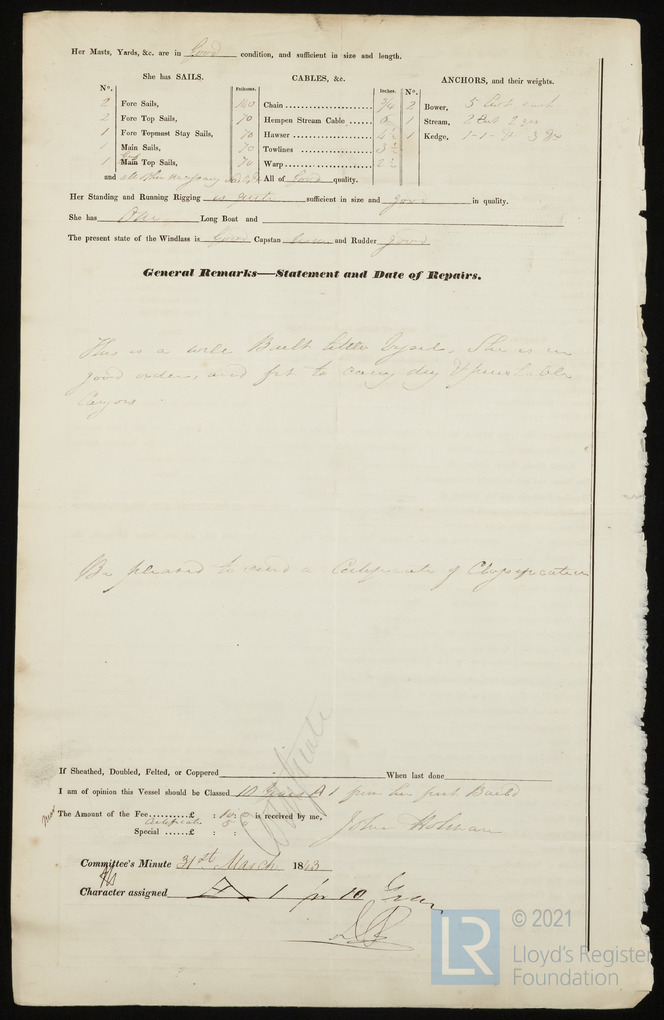 Her Masts, Yards, &c. are in Good condition, and sufficient in size and length.
She has SAILS.
CABLES, &c.
ANCHORS, and their weights.
N°.
Fathoms.
Inches.
N°.
2 Fore Sails,
Chain
3/4
2 Bower,
5 Cwt each
2 Fore Top Sails,
70
Hempen Stream Cable
6
1 Stream,
2 Cwt 2 qrs
1 Fore Topmast Stay Sails,
70
Hawser
4 ½
1 Kedge,
1 Main Sails,
70
Towlines
3 ½
1 Main Top Sails,
70
Warp
2 ½
and all other necessary
All of Good quality.
Her Standing and Running Rigging is quite sufficient in size and good in quality.
She has One Long Boat and
The present state of the Windlass is Good Capstan and Rudder good
General Remarks—Statement and Date of Repairs.
This is a well Built little She is in
good order, and fit to carry dry & perishable
Cargoes
Be pleased to send a Certificate of Classification
Certificate
If Sheathed, Doubled, Felted, or Coppered When last done
I am of opinion this Vessel should be Classed 10 Years A 1 from her first Build
The Amount of the Fee £ : 10 : 0 is received by me, John Holman
Certificate 5 : 0
Special £ : :
Committee's Minute 31st March 1843
Character assigned A 1 for 10 Years
LR
© 2021
Lloyd's Register
Foundation